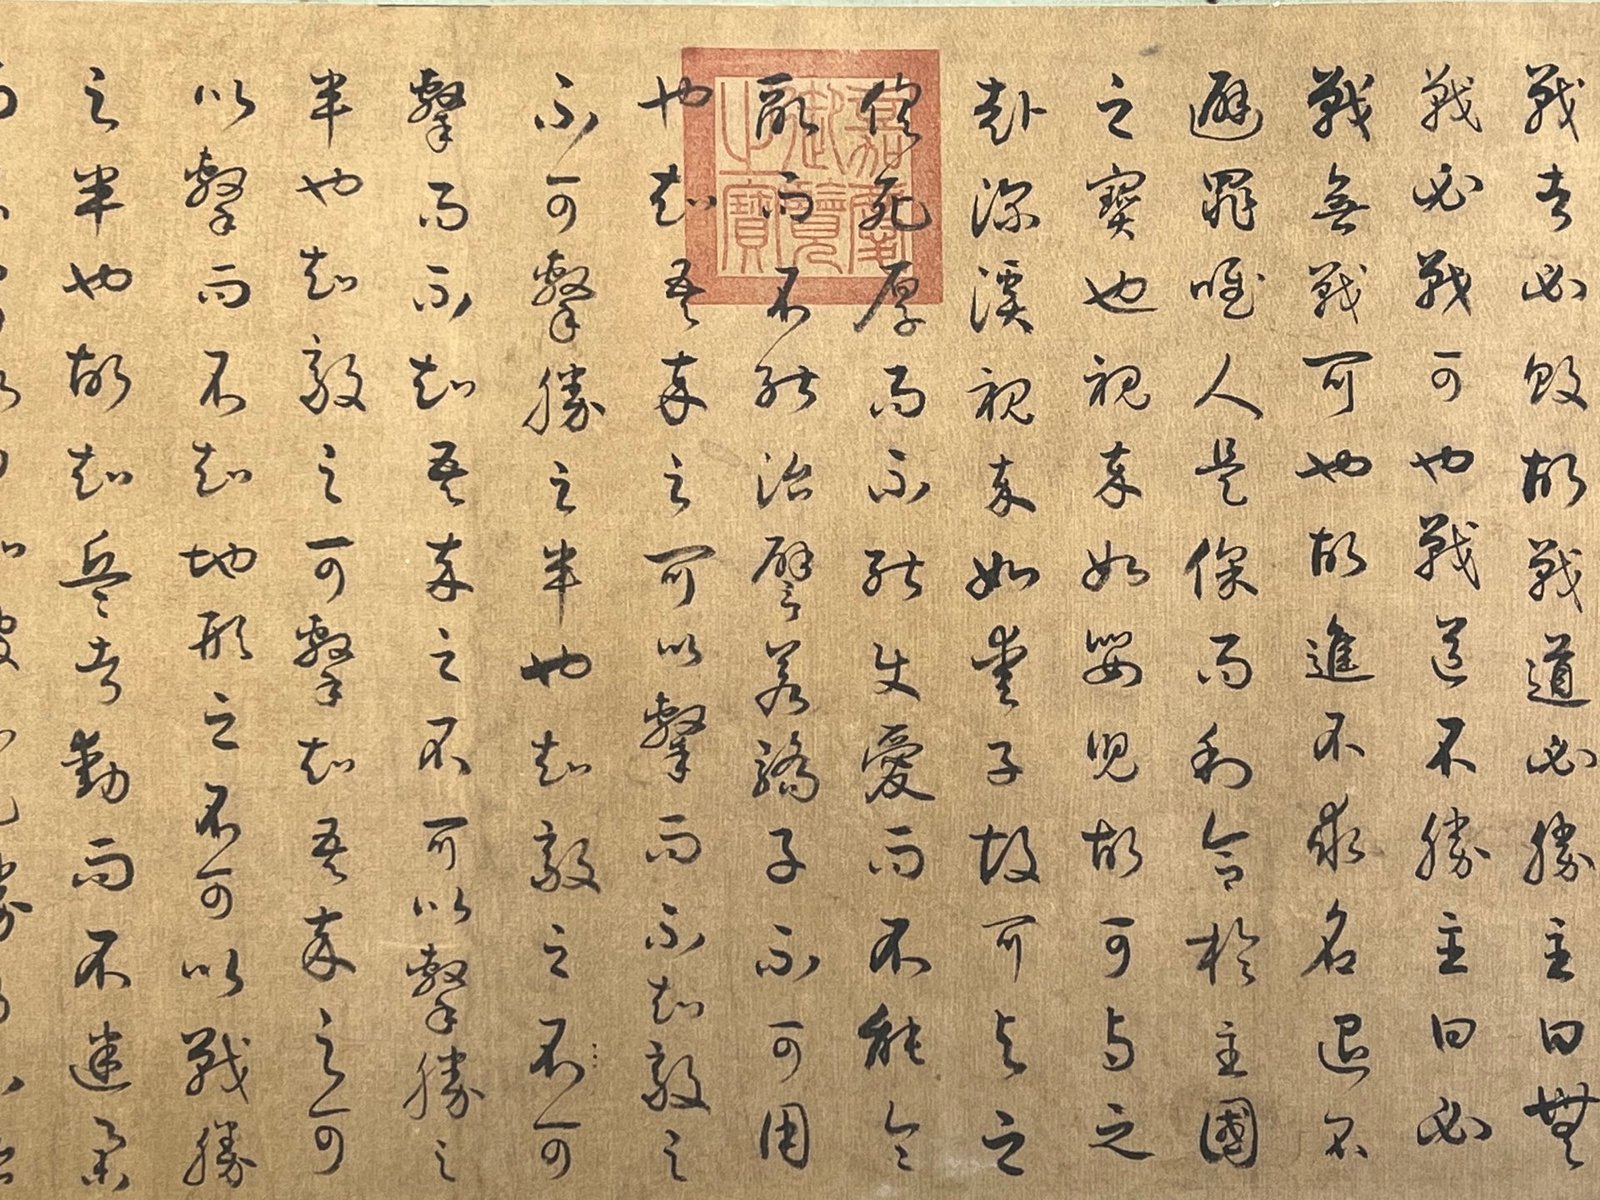 戰者必敗故戰道必勝主曰無
戰必戰可也戰道不勝主曰必
戰無戰可也故進不求名退不
避罪唯人是保而利合於主國
之寶也視卒如嬰兒故可與之
赴深溪視卒如愛子故可與之
俱死厚而不能使愛而不能令
亂而不能治譬若驕子不可用
也知吾卒之可以擊而不知敵之
不可擊勝之半也知敵之不可
擊而不知吾卒之不可以擊勝之
半也知敵之可擊知吾卒之可
以擊而不知地形之不可以戰勝
之半也故知兵者動而不迷舉
嘉慶
御覽
之寶